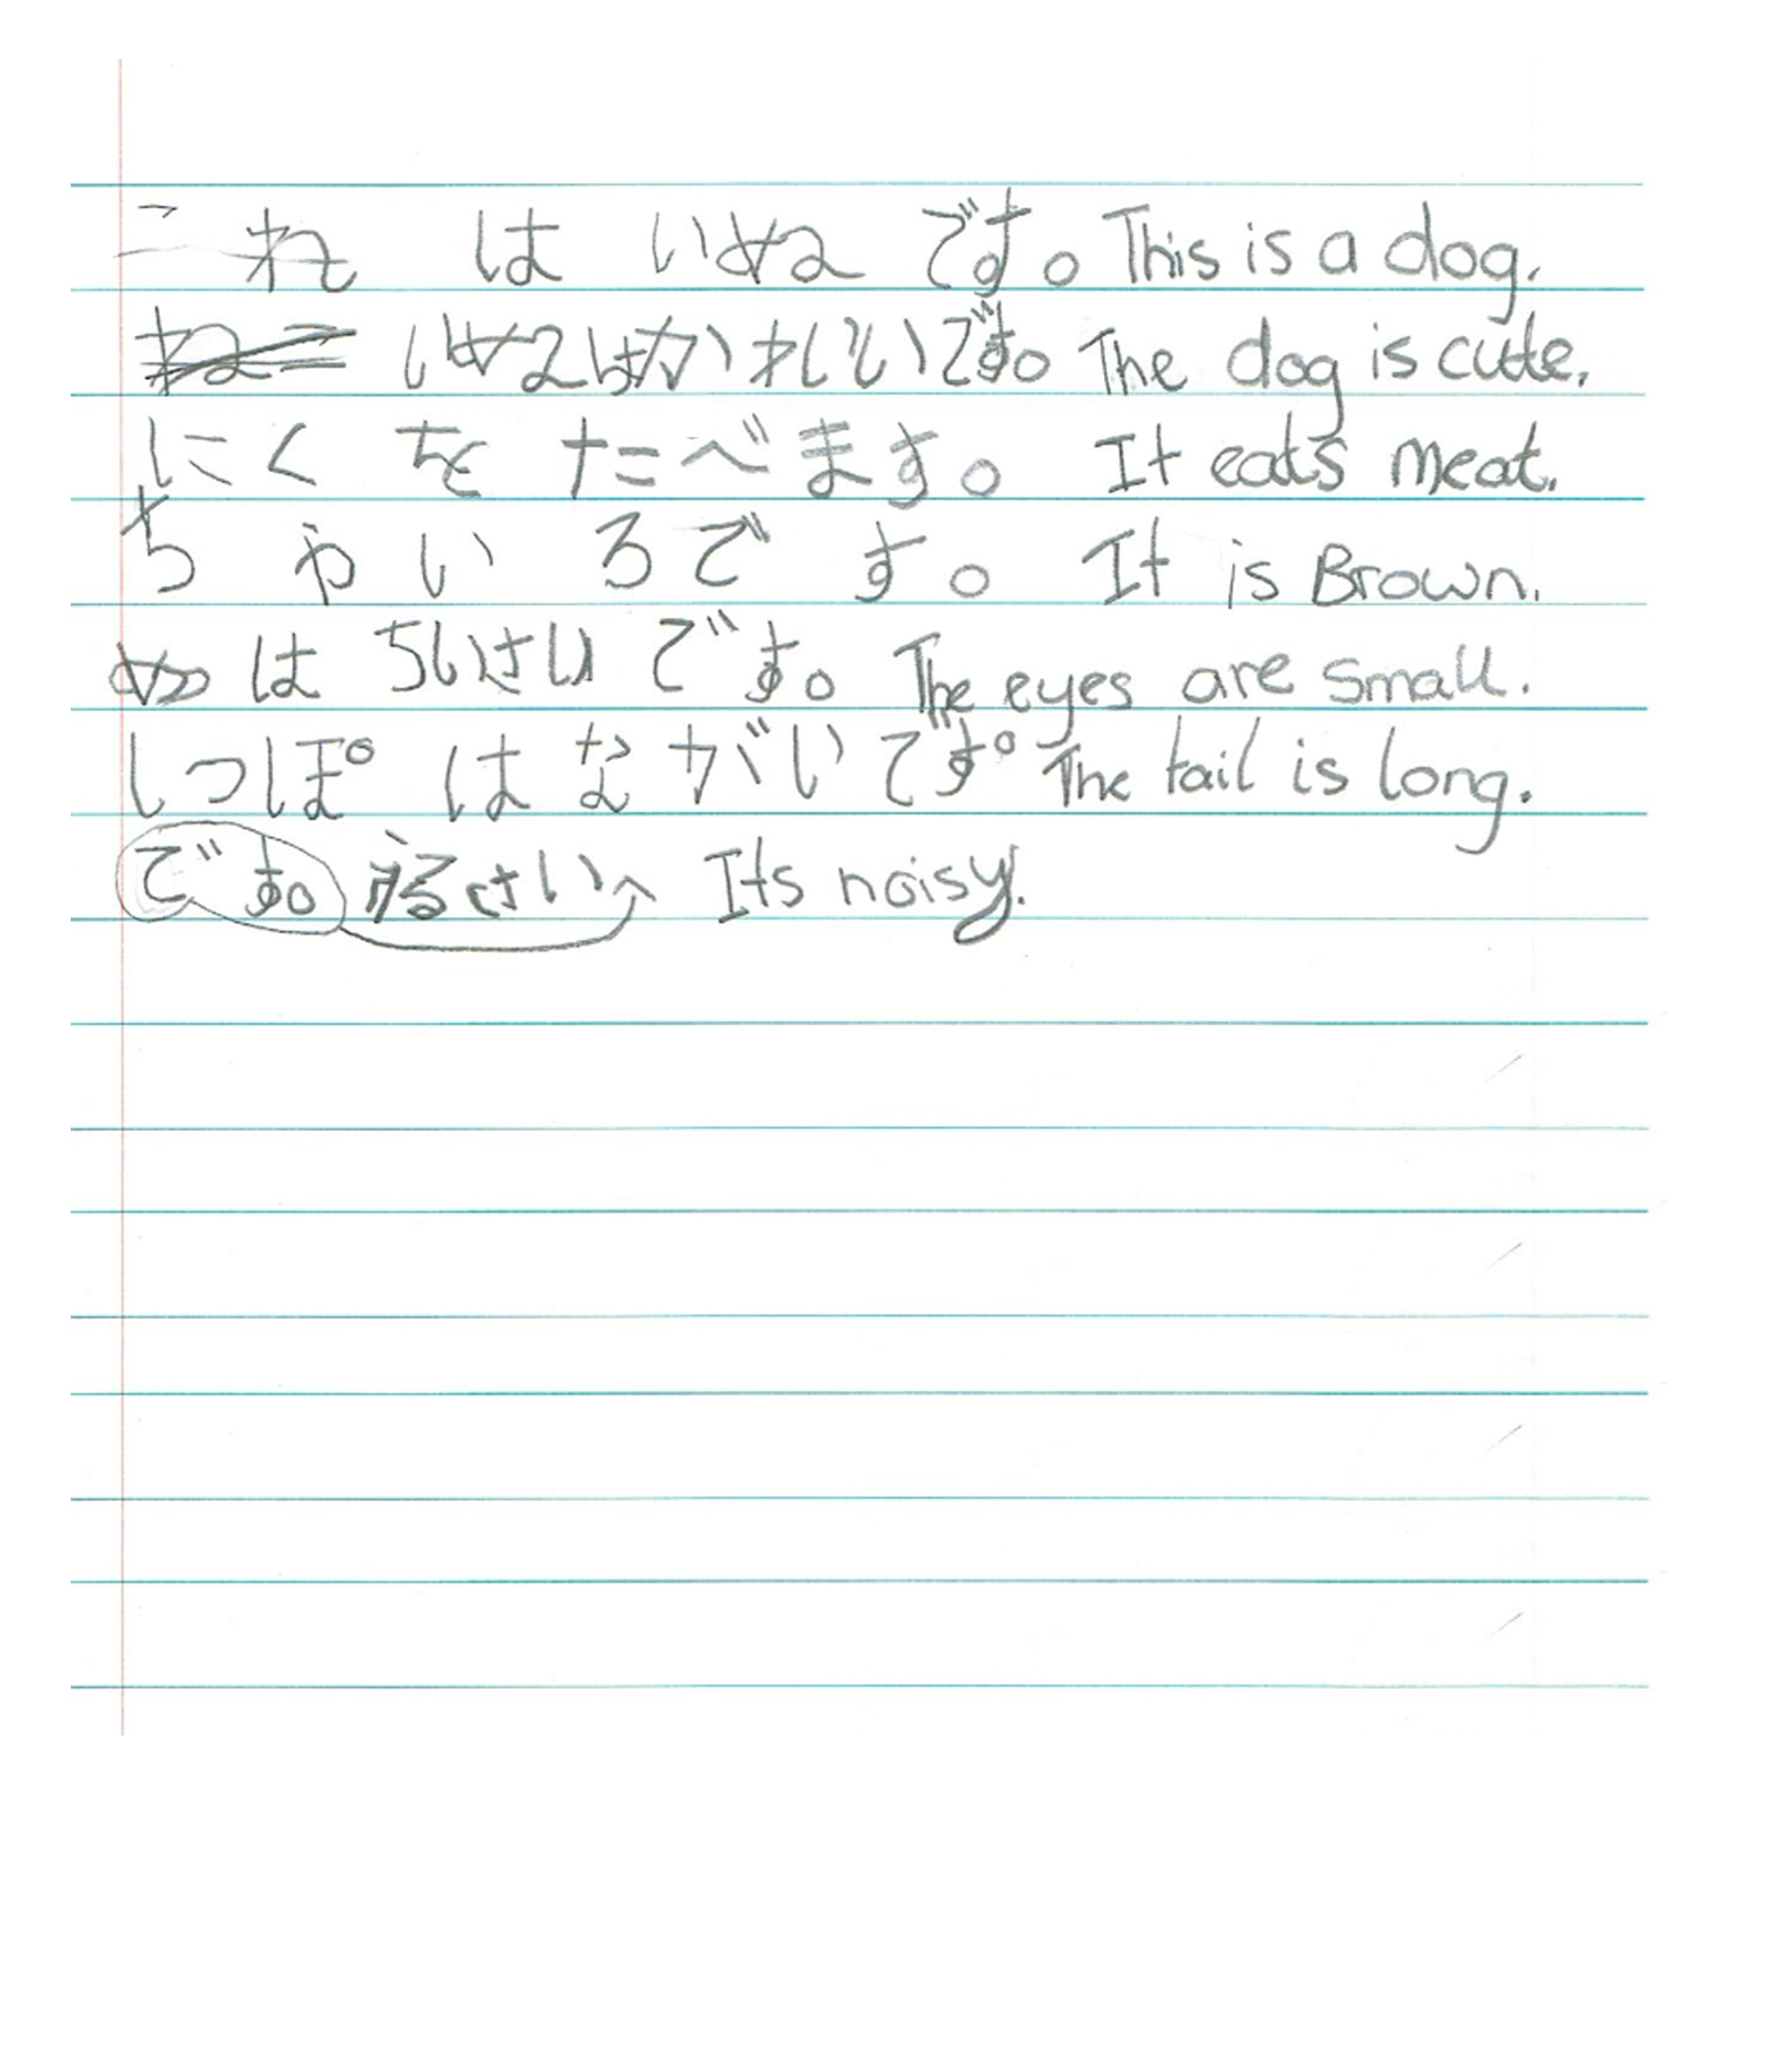 これ は いぬ です。 This is a dog.
いぬはかわいいです。 The dog is cute.
にく を たべます。 It eats meat.
ちゃいろです。 It is Brown.
め は ちいさい です。 The eyes are small.
しっぽ は ながいです。 The tail is long.
です。 うるさい Its noisy.